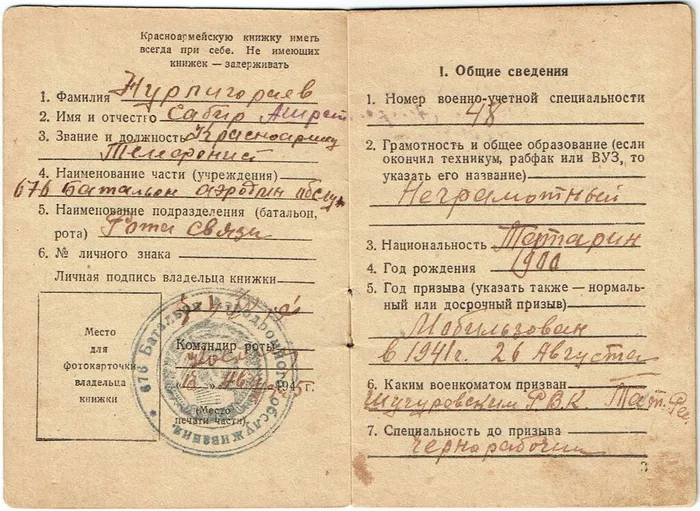 Красноармейскую книжку иметь
всегда при себе. Не имеющих
книжек — задерживать
1. Фамилия Нурпигораев
2. Имя и отчество Сабир
3. Звание и должность Красноармиц
Телефонист
4. Наименование части (учреждения)
676 Батальон аэродр обслуж
5. Наименование подразделения (батальон,
рота) Рота связи
6. № личного знака
Личная подпись владельца книжки
Место
для
фотокарточки
владельца
книжки
Командир роты
1945г.
(Место
печати части)
* 676 Батальон Аэродромного обслуживания
I. Общие сведения
1. Номер военно-учетной специальности
48
2. Грамотность и общее образование (если
окончил техникум, рабфак или ВУЗ, то
указать его название)
Неграмотный
3. Национальность Тотарин
4. Год рождения 1900
5. Год призыва (указать также — нормаль-
ный или досрочный призыв)
Мобильзован
в 1941г. 26 Августа
6. Каким военкоматом призван
Шучуровским РВК Тат. Ре.
7. Специальность до призыва
чернорабочий
3